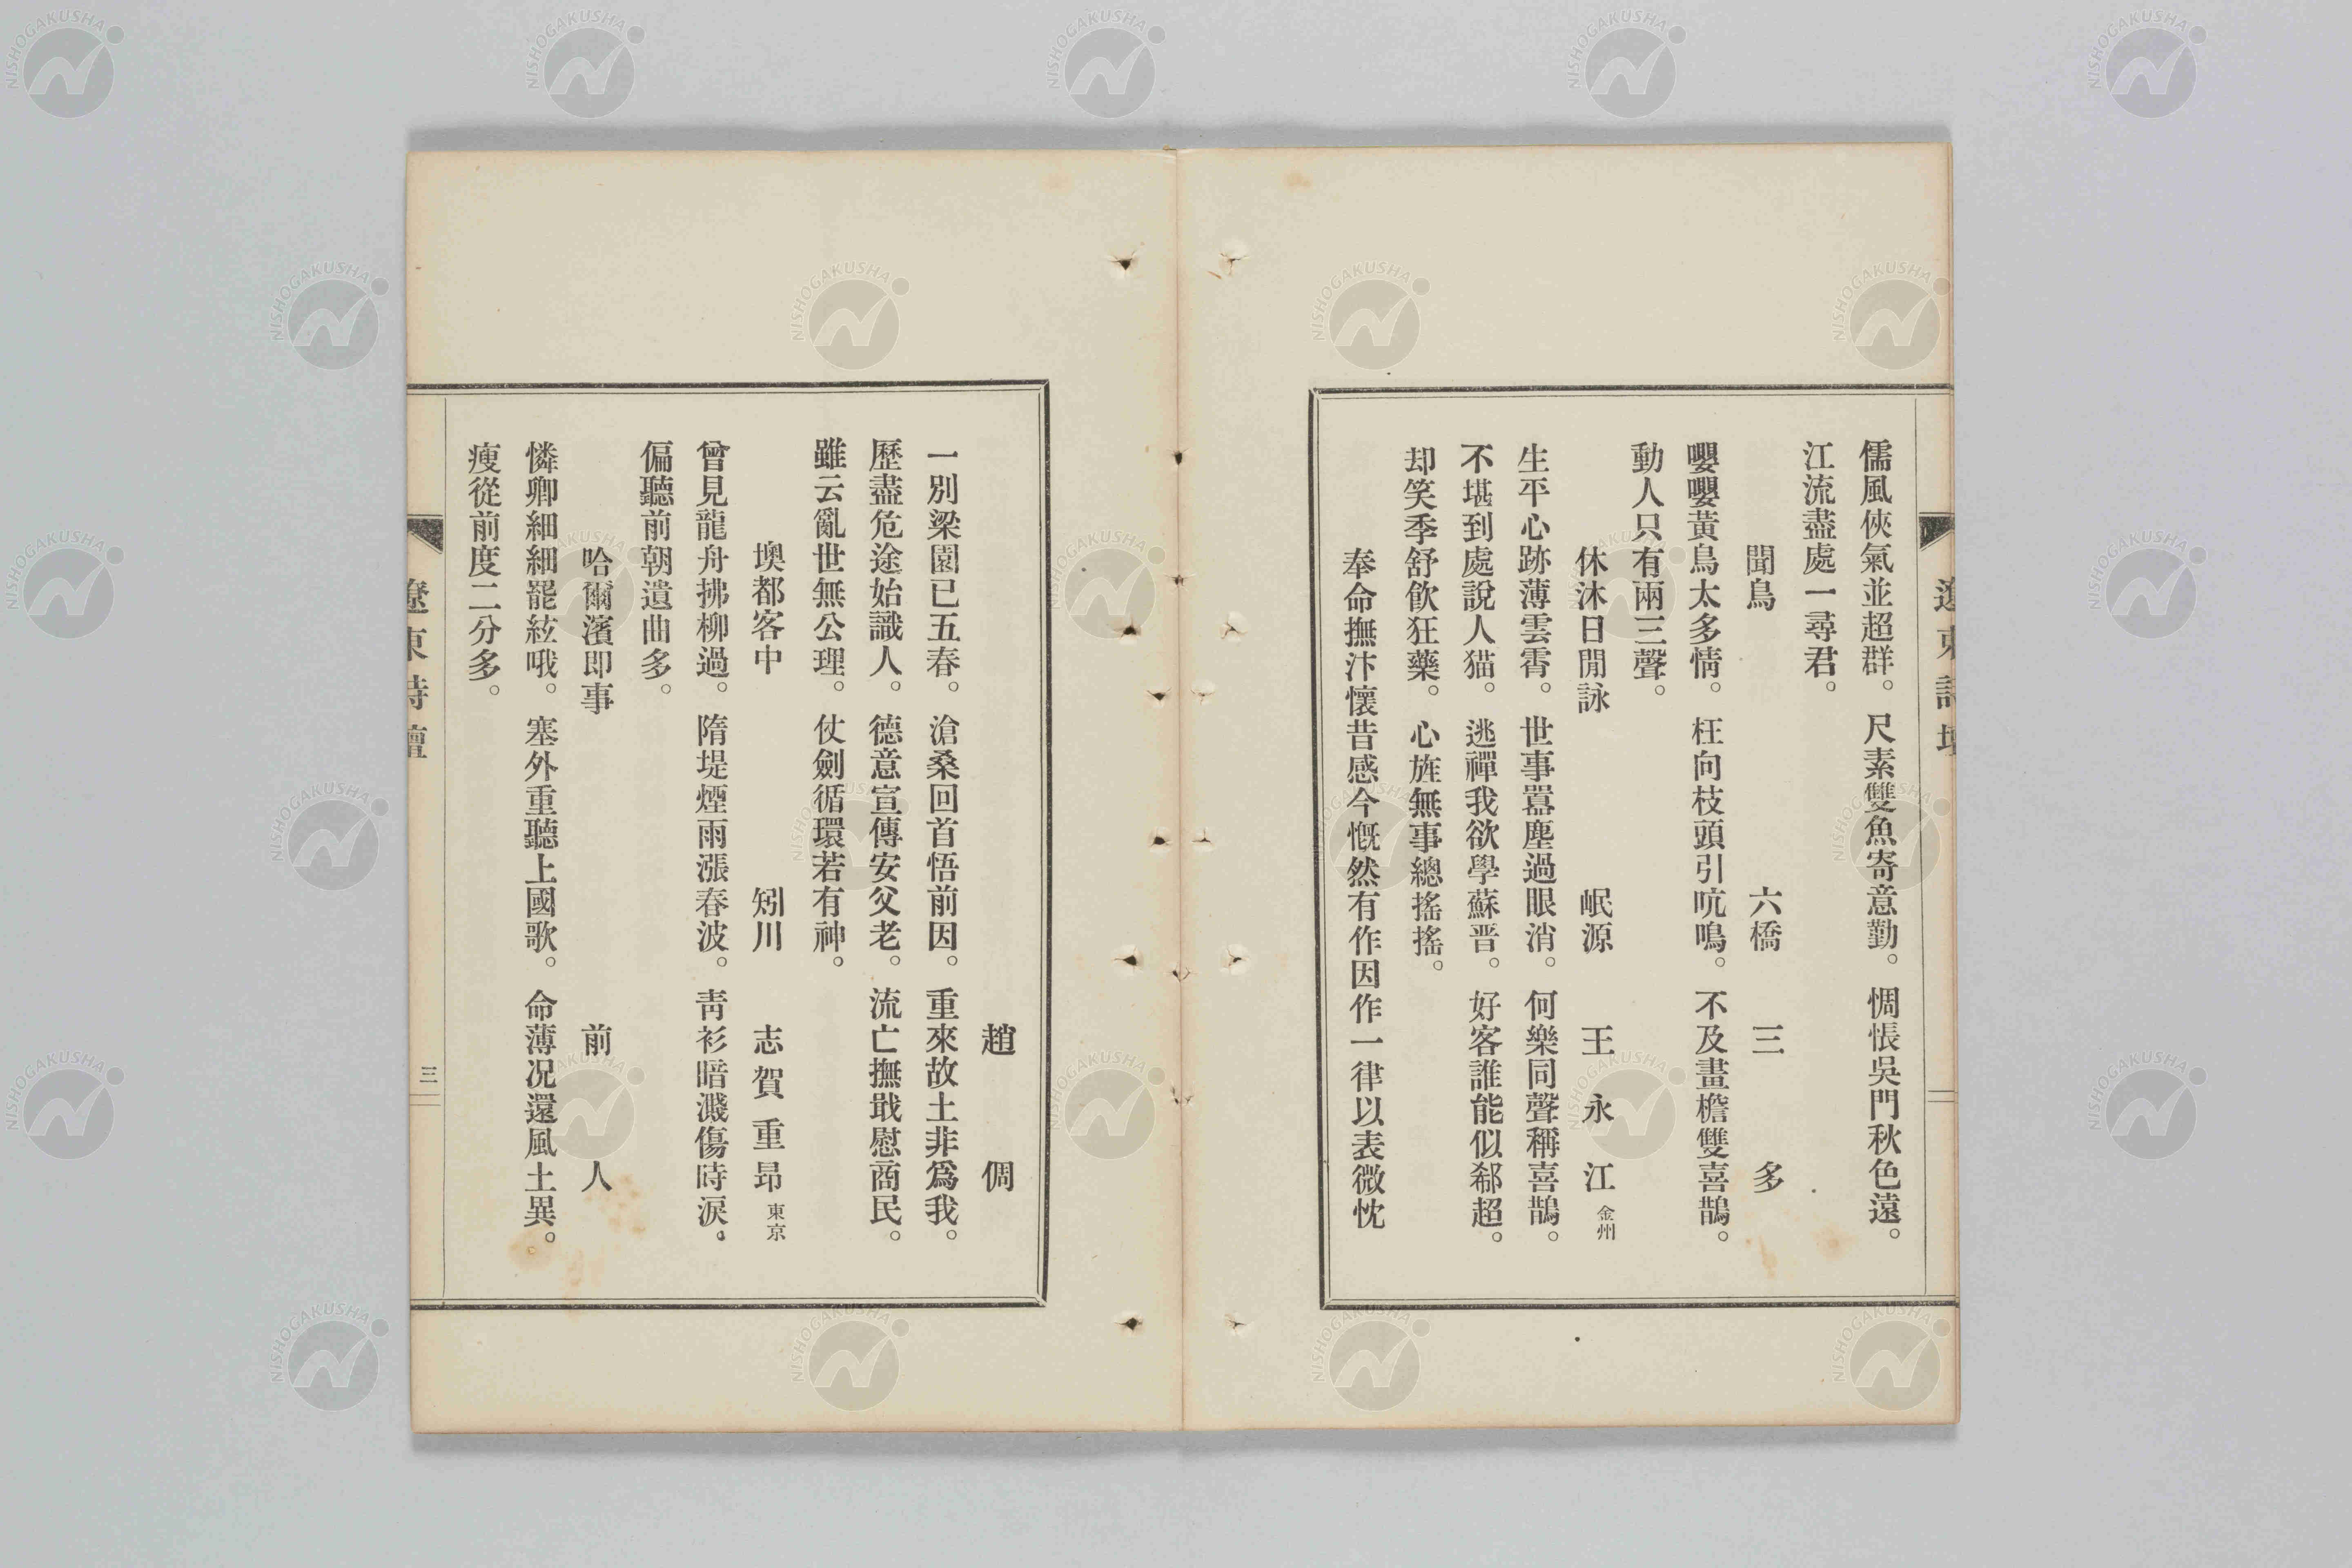 遼東詩壇
儒風俠氣並超群。尺素雙魚寄意勤。惆悵吳門秋色遠。
江流盡處一尋君。
聞鳥 六橋 三多
嚶嚶黃鳥太多情。枉向枝頭引吭鳴。不及畫檐雙喜鵲。
動人只有兩三聲。
休沐日閒詠 岷源 王永江 金州
生平心跡薄雲霄。世事囂塵過眼消。何樂同聲稱喜鵲。
不堪到處說人猫。逃禪我欲學蘇晋。好客誰能似郗超。
却笑季舒飲狂藥。心旌無事總搖搖。
奉命撫汴懷昔感今慨然有作因作一律以表微忱
趙倜
一別梁園已五春。滄桑回首悟前因。重來故土非爲我。
歷盡危途始識人。德意宣傳安父老。流亡撫戢慰商民。
雖云亂世無公理。仗劍循環若有神。
墺都客中 矧川 志賀重昂 東京
曾見龍舟拂柳過。隋堤煙雨漲春波。靑衫暗濺傷時淚。
偏聽前朝遺曲多。
哈爾濱即事 前人
憐卿細細罷絃哦。塞外重聽上國歌。命薄况還風土異。
瘦從前度二分多。
遼東詩壇 三
NISHOGAKUSHA